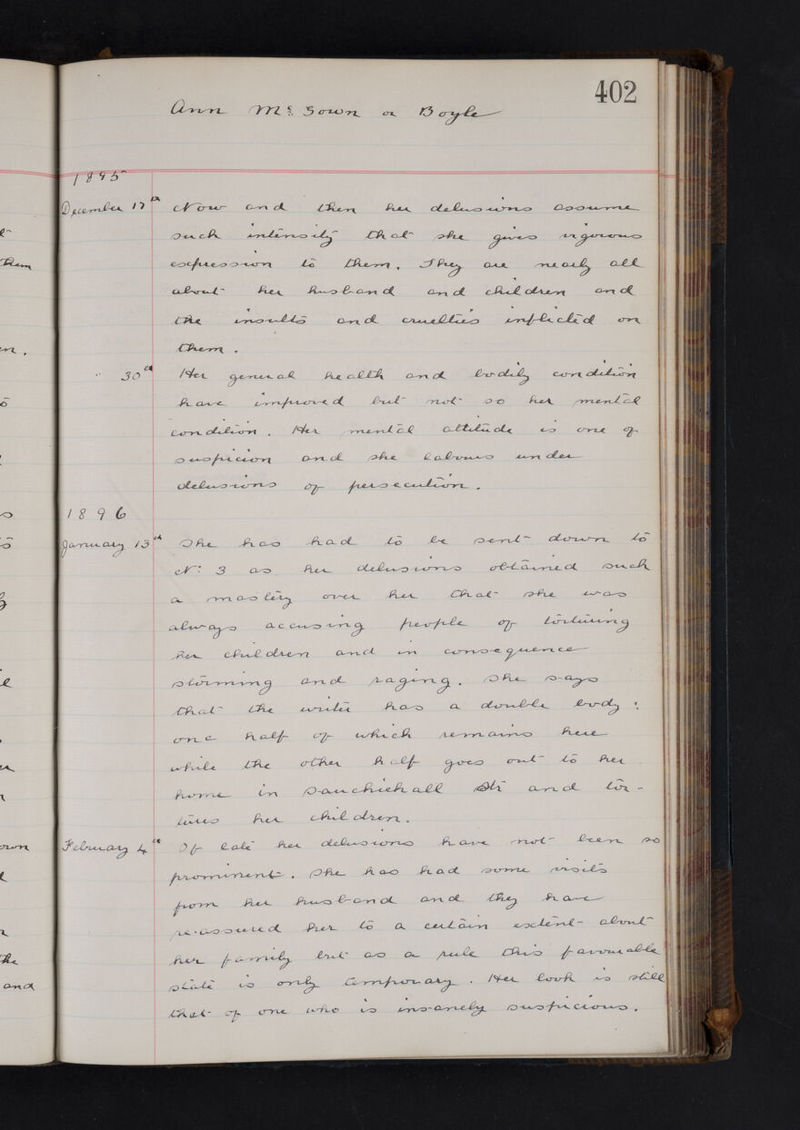 402
Ann McGown or Boyle
1895
December 17th Now and then her delusions assume
such intensity that she gives vigorous
expression to them. They are nearly all
about her husband and children and
the insults and cruelties inflicted on
them.
" 30th Her general health and bodily condition
have improved but not so her mental
condition. Her mental attitude is one of
suspicion and she labours under
delusions of persecution.
1896
January 13th She has had to be sent down to
No: 3 as her delusions obtained such
a mastery over her that she was
always accusing people of torturing
her children and in consequence
storming and raging. She says
that the writer has a double body:
one half of which remains here
while the other half goes out to her
home in Sauchiehall Str and tor-
tures her children.
February 4th Of late her delusions have not been so
prominent. She has had some visits
from her husband and they have
re-assured her to a certain extent about
her family but as a rule this favourable
state is only temporary. Her look is still
that of one who is insanely suspicious.